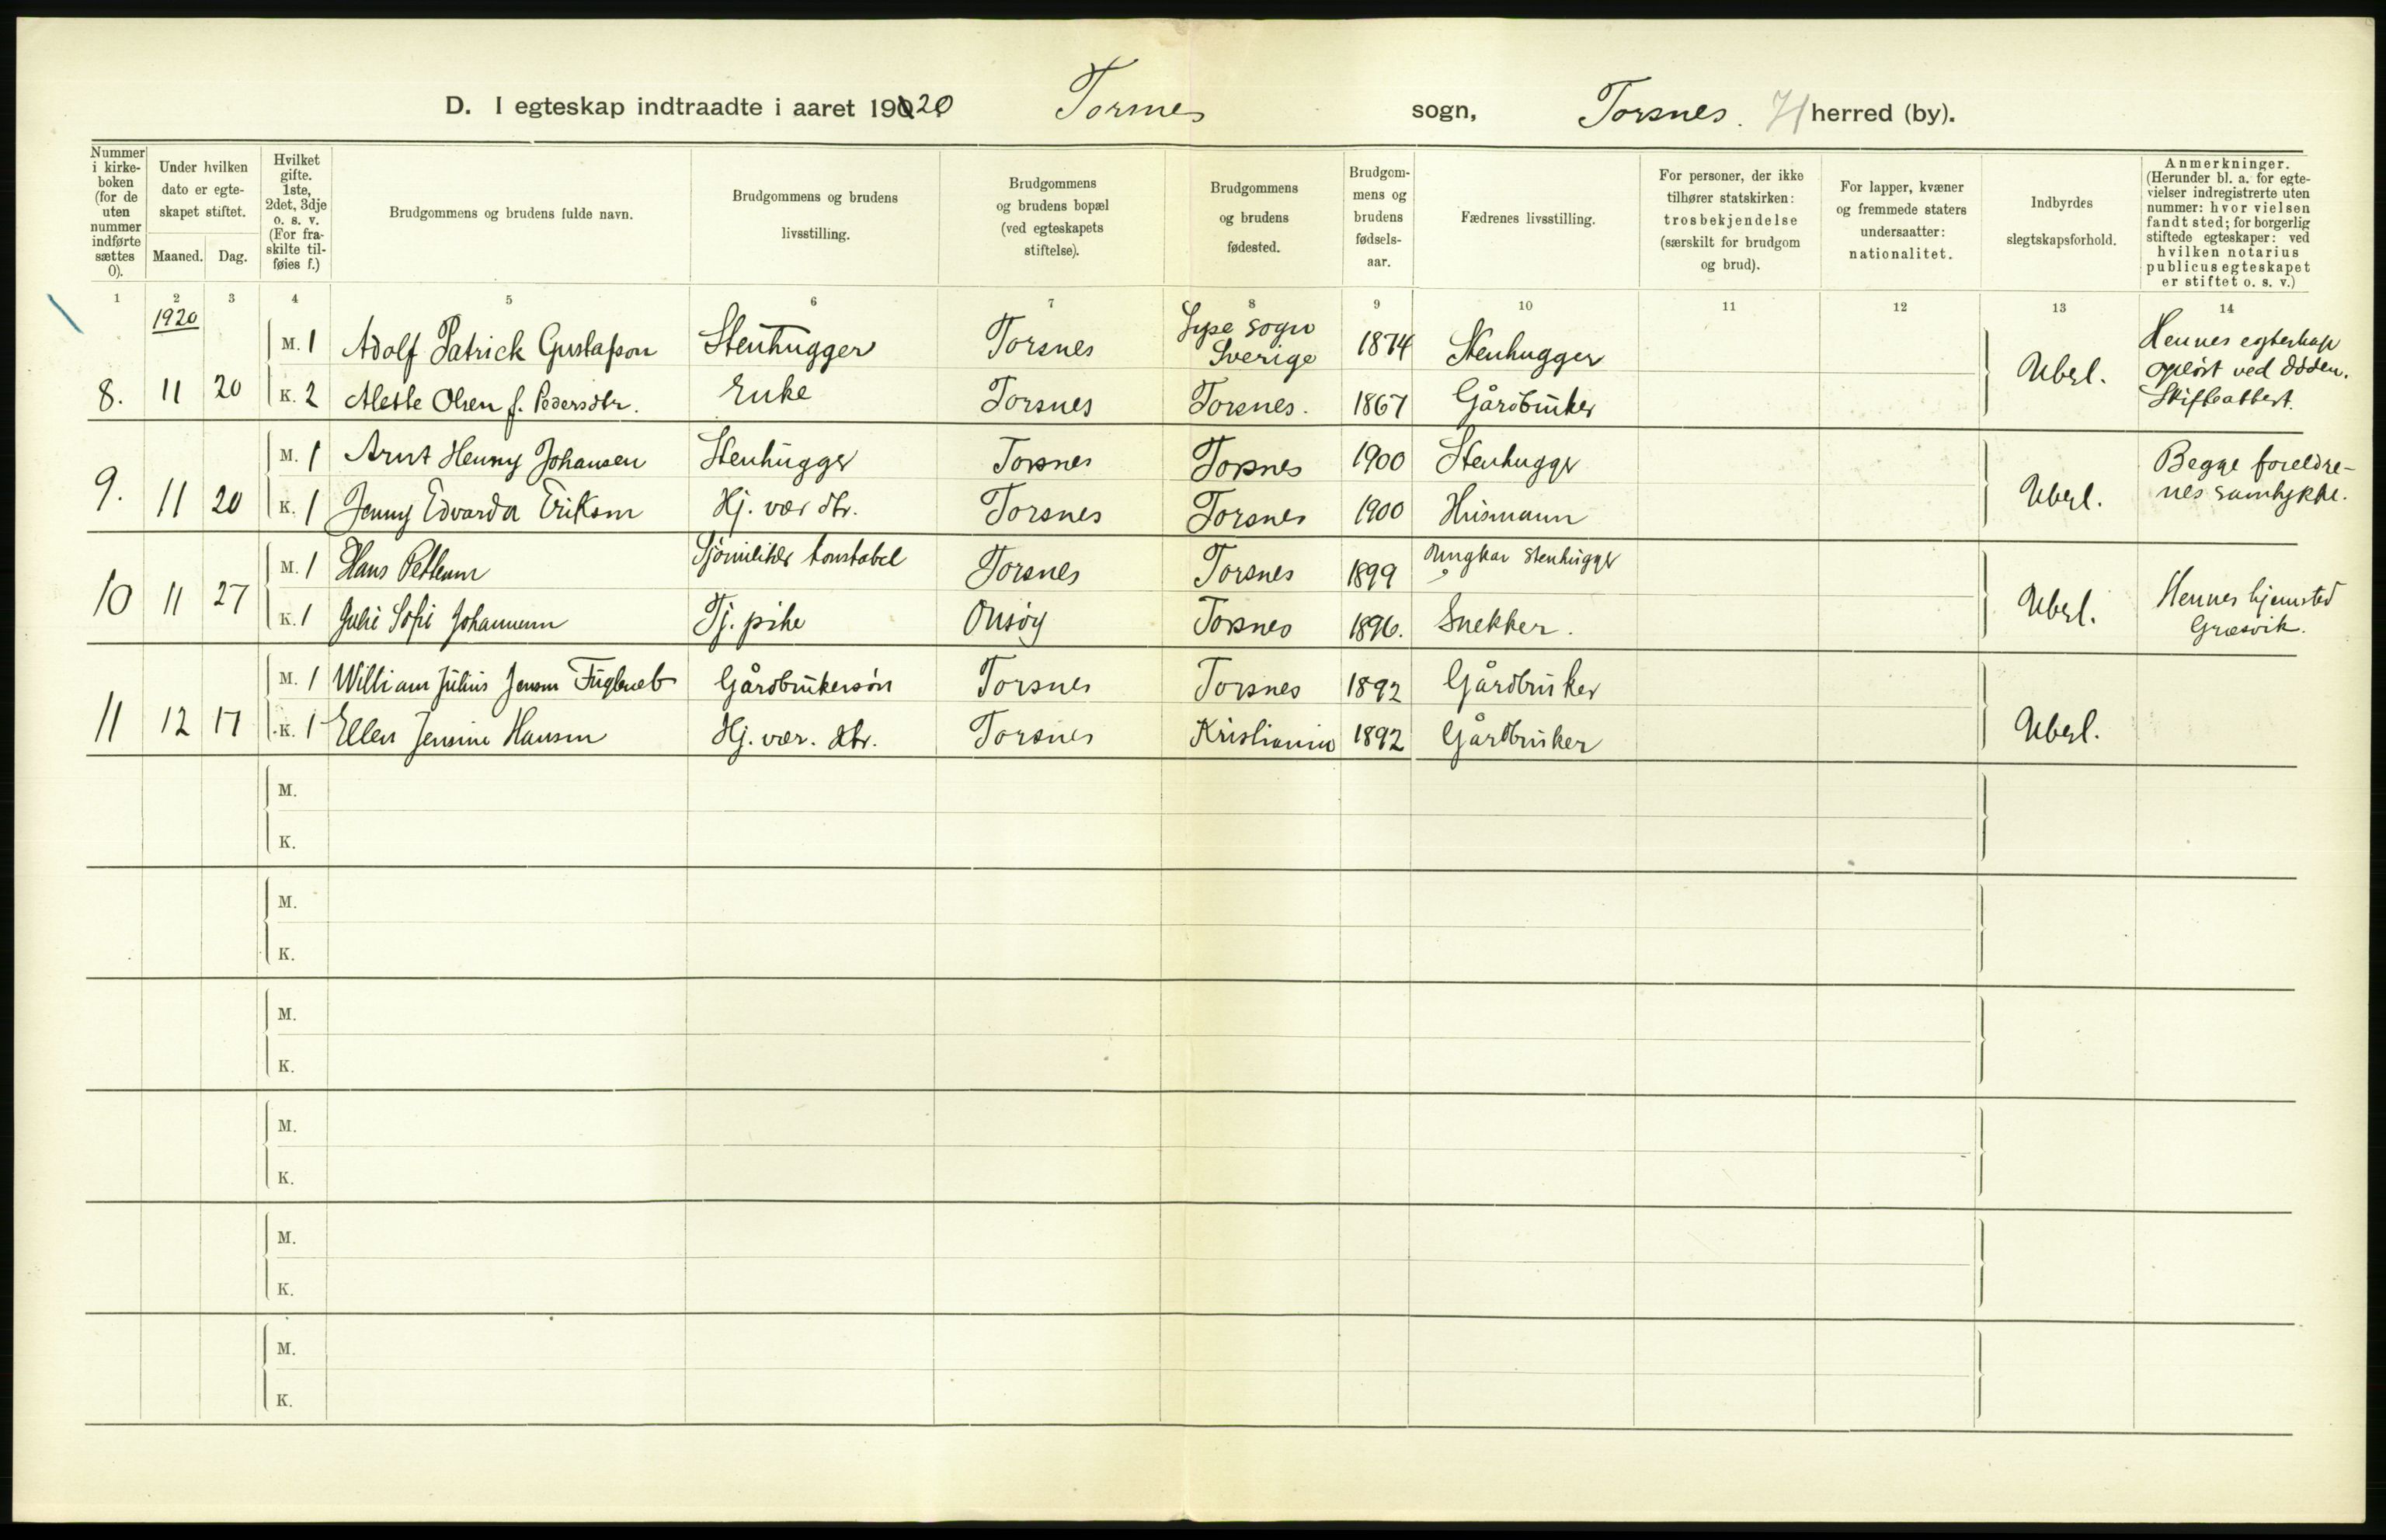 D. I egteskap indtraadte i aaret 1920 Torsnes sogn, Torsnes. H herred (by).
Nummer i kirkeboken (for de uten nummer indførte sættes 0).
Under hvilken dato er egteskapet stiftet.
Maaned. Dag.
Hvilket gifte. 1ste, 2det, 3dje o. s. v. (For fraskilte tilføies f.)
Brudgommens og brudens fulde navn.
Brudgommens og brudens livsstilling.
Brudgommens og brudens bopæl (ved egteskapets stiftelse).
Brudgommens og brudens fødested.
Brudgommens og brudens fødselsaar.
Fædrenes livsstilling.
For personer, der ikke tilhører statskirken: trosbekjendelse (særskilt for brudgom og brud).
For lapper, kvæner og fremmede staters undersaatter: nationalitet.
Indbyrdes slegtskapsforhold.
Anmerkninger. (Herunder bl. a. for egtevielser indregistrerte uten nummer: hvor vielsen fandt sted; for borgerlig stiftede egteskaper: ved hvilken notarius publicus egteskapet er stiftet o. s. v.)
1 2 3 4 5 6 7 8 9 10 11 12 13 14
1920
M. 1 Adolf Patrick Gustafson Stenhugger Torsnes Lyse sogn Sverige 1874 Stenhugger
8. 11 20 K. 2 Alette Olsen f. Pedersdtr. Enke Torsnes Torsnes. 1867 Gårdbruker Ubesl. Hennes egteskap opløst ved døden. Skifteattest.
M. 1 Arnt Henny Johansen Stenhugger Torsnes Torsnes 1900 Stenhugger
9. 11 20 K. 1 Jenny Edvarda Eriksen Hj. vær. dtr. Torsnes Torsnes 1900 Husmann Ubesl. Begge foreldrenes samtykke.
M. 1 Hans Pettersen konstabel Torsnes Torsnes 1899 Ungkar Stenhugger
10 11 27 K. 1 Julie Sofie Johannesen Tj. pike Onsøy Torsnes 1896. Snekker. Ubesl. Hennes hjemsted Græsvik.
M. 1 William Julius Jensen Gårdbrukersøn Torsnes Torsnes 1892 Gårdbruker
11 12 17 K. 1 Ellen Jensine Hansen Hj. vær. dtr. Torsnes Kristiania 1892 Gårdbruker Ubesl.
M.
K.
M.
K.
M.
K.
M.
K.
M.
K.
M.
K.